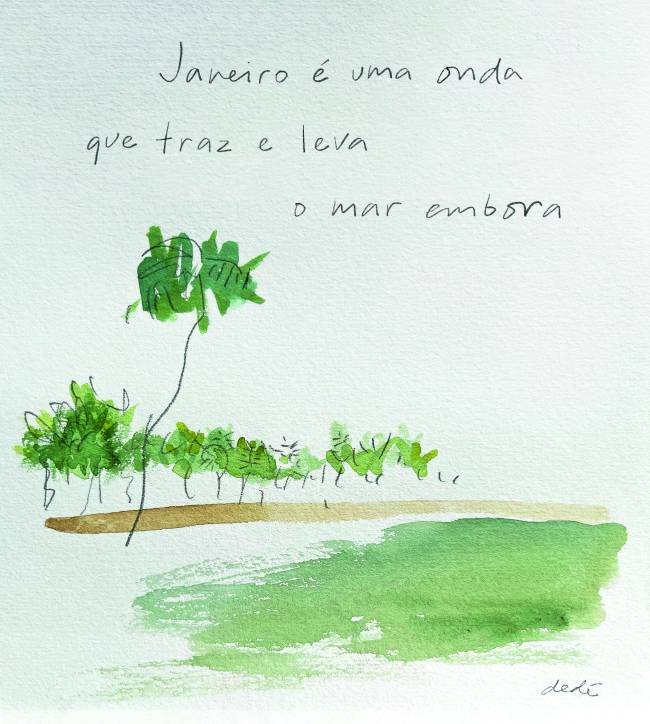 Janeiro é uma onda
que traz e leva
o mar embora
dedê